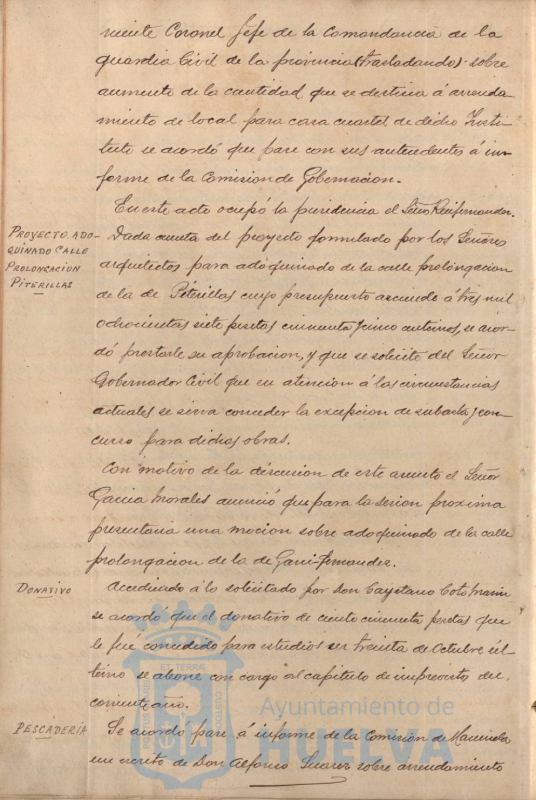 niente Coronel Jefe de la Comandancia de la
guardia Civil de la provincia (trasladando) sobre
aumento de la cantidad que se destina á arrenda-
miento de local para casa cuartel de dicho Insti-
tuto se acordó que pase con sus antecedentes á in-
forme de la Comision de Gobernacion.
En este acto ocupó la presidencia el Señor
PROYECTO ADO-
QUINADO CALLE
PROLONGACION
PITERILLAS
Dada cuenta del proyecto formulado por los Señores
arquitectos para adoquinado de la calle prolongacion
de la de Piterillas cuyo presupuesto asciende á tres mil
ochocientas siete pesetas cincuenta y cinco centimos, se acor-
dó prestarle su aprobacion, y que se solicite del Señor
Gobernador Civil que en atencion á las circunstancias
actuales se sirva conceder la excepcion de subasta y con-
curso para dichas obras.
Con motivo de la discusion de este asunto el Señor
Garcia Morales anunció que para la sesion proxima
presentaria una mocion sobre adoquinado de la calle
prolongacion de la de Garci-Fernandez.
DONATIVO
Accediendo á lo solicitado por Don Cayetano Coto Marin
se acordó que el donativo de ciento cincuenta pesetas que
le fué concedido para estudios en treinta de Octubre úl-
timo se abone con cargo al capitulo de imprevistos del
corriente año.
PESCADERÍA
Se acordó pase á informe de la Comision de
un escrito de Don Alfonso Suarez sobre arrendamiento
PORTUS MARIS
ET TERRÆ
CUSTODIA
Ayuntamiento de
HUELVA